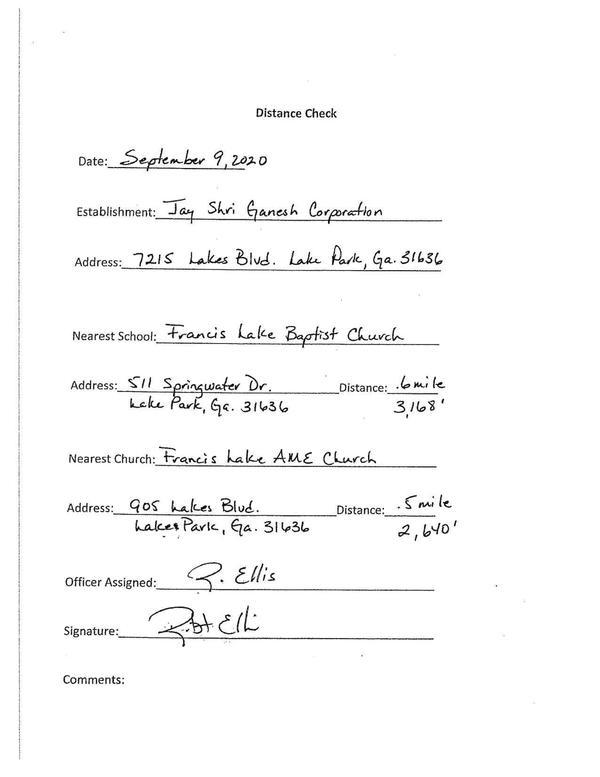 Distance Check
Date: September 9, 2020
Establishment: Jay Shri Ganesh Corporation
Address: 7215 Lakes Blvd. Lake Park, Ga. 31636
Nearest School: Francis Lake Baptist Church
Address: 511 Springwater Dr. Distance: .6 mile
Lake Park, Ga. 31636 3,168'
Nearest Church: Francis Lake AME Church
Address: 905 Lakes Blvd. Distance: .5 mile
Lakes Park, Ga. 31636 2,640'
Officer Assigned: R. Ellis
Signature:
Comments: